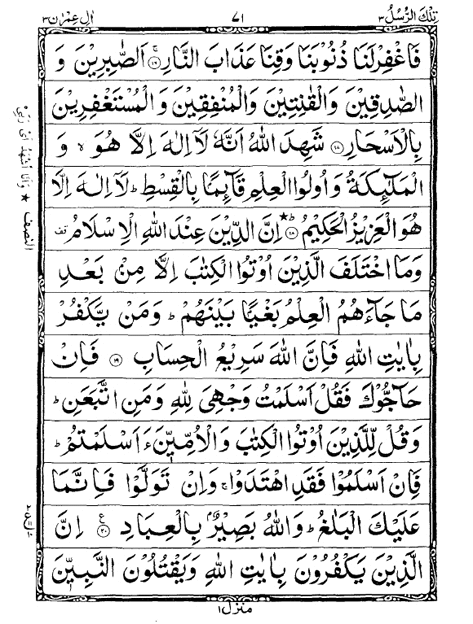 تِلْكَ الرُّسُلُ ٣
٧١
اٰلِ عِمْرٰن ٣
فَاغْفِرْلَنَا ذُنُوْبَنَا وَقِنَا عَذَابَ النَّارِ ۚ ۝۱۶ اَلصّٰبِرِيْنَ وَ
الصّٰدِقِيْنَ وَالْقٰنِتِيْنَ وَالْمُنْفِقِيْنَ وَالْمُسْتَغْفِرِيْنَ
بِالْاَسْحَارِ ۝۱۷ شَهِدَ اللّٰهُ اَنَّهٗ لَاۤ اِلٰهَ اِلَّا هُوَ ۙ وَ
الْمَلٰٓئِكَةُ وَاُولُوا الْعِلْمِ قَآئِمًاۢ بِالْقِسْطِ ؕ لَاۤ اِلٰهَ اِلَّا
هُوَ الْعَزِيْزُ الْحَكِيْمُ ؕ ۝۱۸ ★ اِنَّ الدِّيْنَ عِنْدَ اللّٰهِ الْاِسْلَامُ قف
وَمَا اخْتَلَفَ الَّذِيْنَ اُوْتُوا الْكِتٰبَ اِلَّا مِنْۢ بَعْدِ
مَا جَآءَهُمُ الْعِلْمُ بَغْيًۢا بَيْنَهُمْ ؕ وَمَنْ يَّكْفُرْ
بِاٰيٰتِ اللّٰهِ فَاِنَّ اللّٰهَ سَرِيْعُ الْحِسَابِ ۝۱۹ فَاِنْ
حَآجُّوْكَ فَقُلْ اَسْلَمْتُ وَجْهِيَ لِلّٰهِ وَمَنِ اتَّبَعَنِ ؕ
وَقُلْ لِّلَّذِيْنَ اُوْتُوا الْكِتٰبَ وَالْاُمِّيّٖنَ ءَاَسْلَمْتُمْ ؕ
فَاِنْ اَسْلَمُوْا فَقَدِ اهْتَدَوْا ۚ وَاِنْ تَوَلَّوْا فَاِنَّمَا
عَلَيْكَ الْبَلٰغُ ؕ وَاللّٰهُ بَصِيْرٌۢ بِالْعِبَادِ ۝۲۰ ع اِنَّ
الَّذِيْنَ يَكْفُرُوْنَ بِاٰيٰتِ اللّٰهِ وَيَقْتُلُوْنَ النَّبِيّٖنَ
منزل ١
النصف